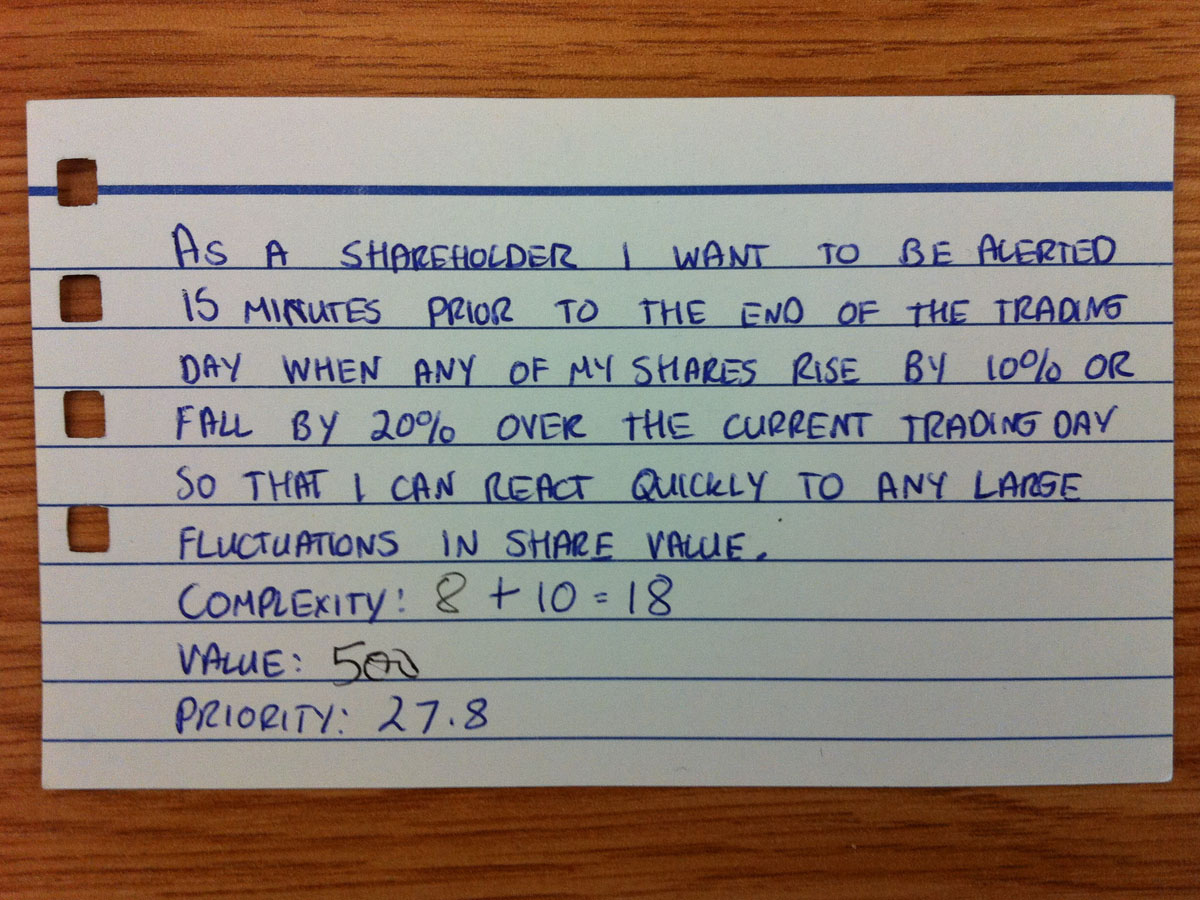 AS A SHAREHOLDER I WANT TO BE ALERTED
15 MINUTES PRIOR TO THE END OF THE TRADING
DAY WHEN ANY OF MY SHARES RISE BY 10% OR
FALL BY 20% OVER THE CURRENT TRADING DAY
SO THAT I CAN REACT QUICKLY TO ANY LARGE
FLUCTUATIONS IN SHARE VALUE.
COMPLEXITY: 8 + 10 = 18
VALUE: 500
PRIORITY: 27.8